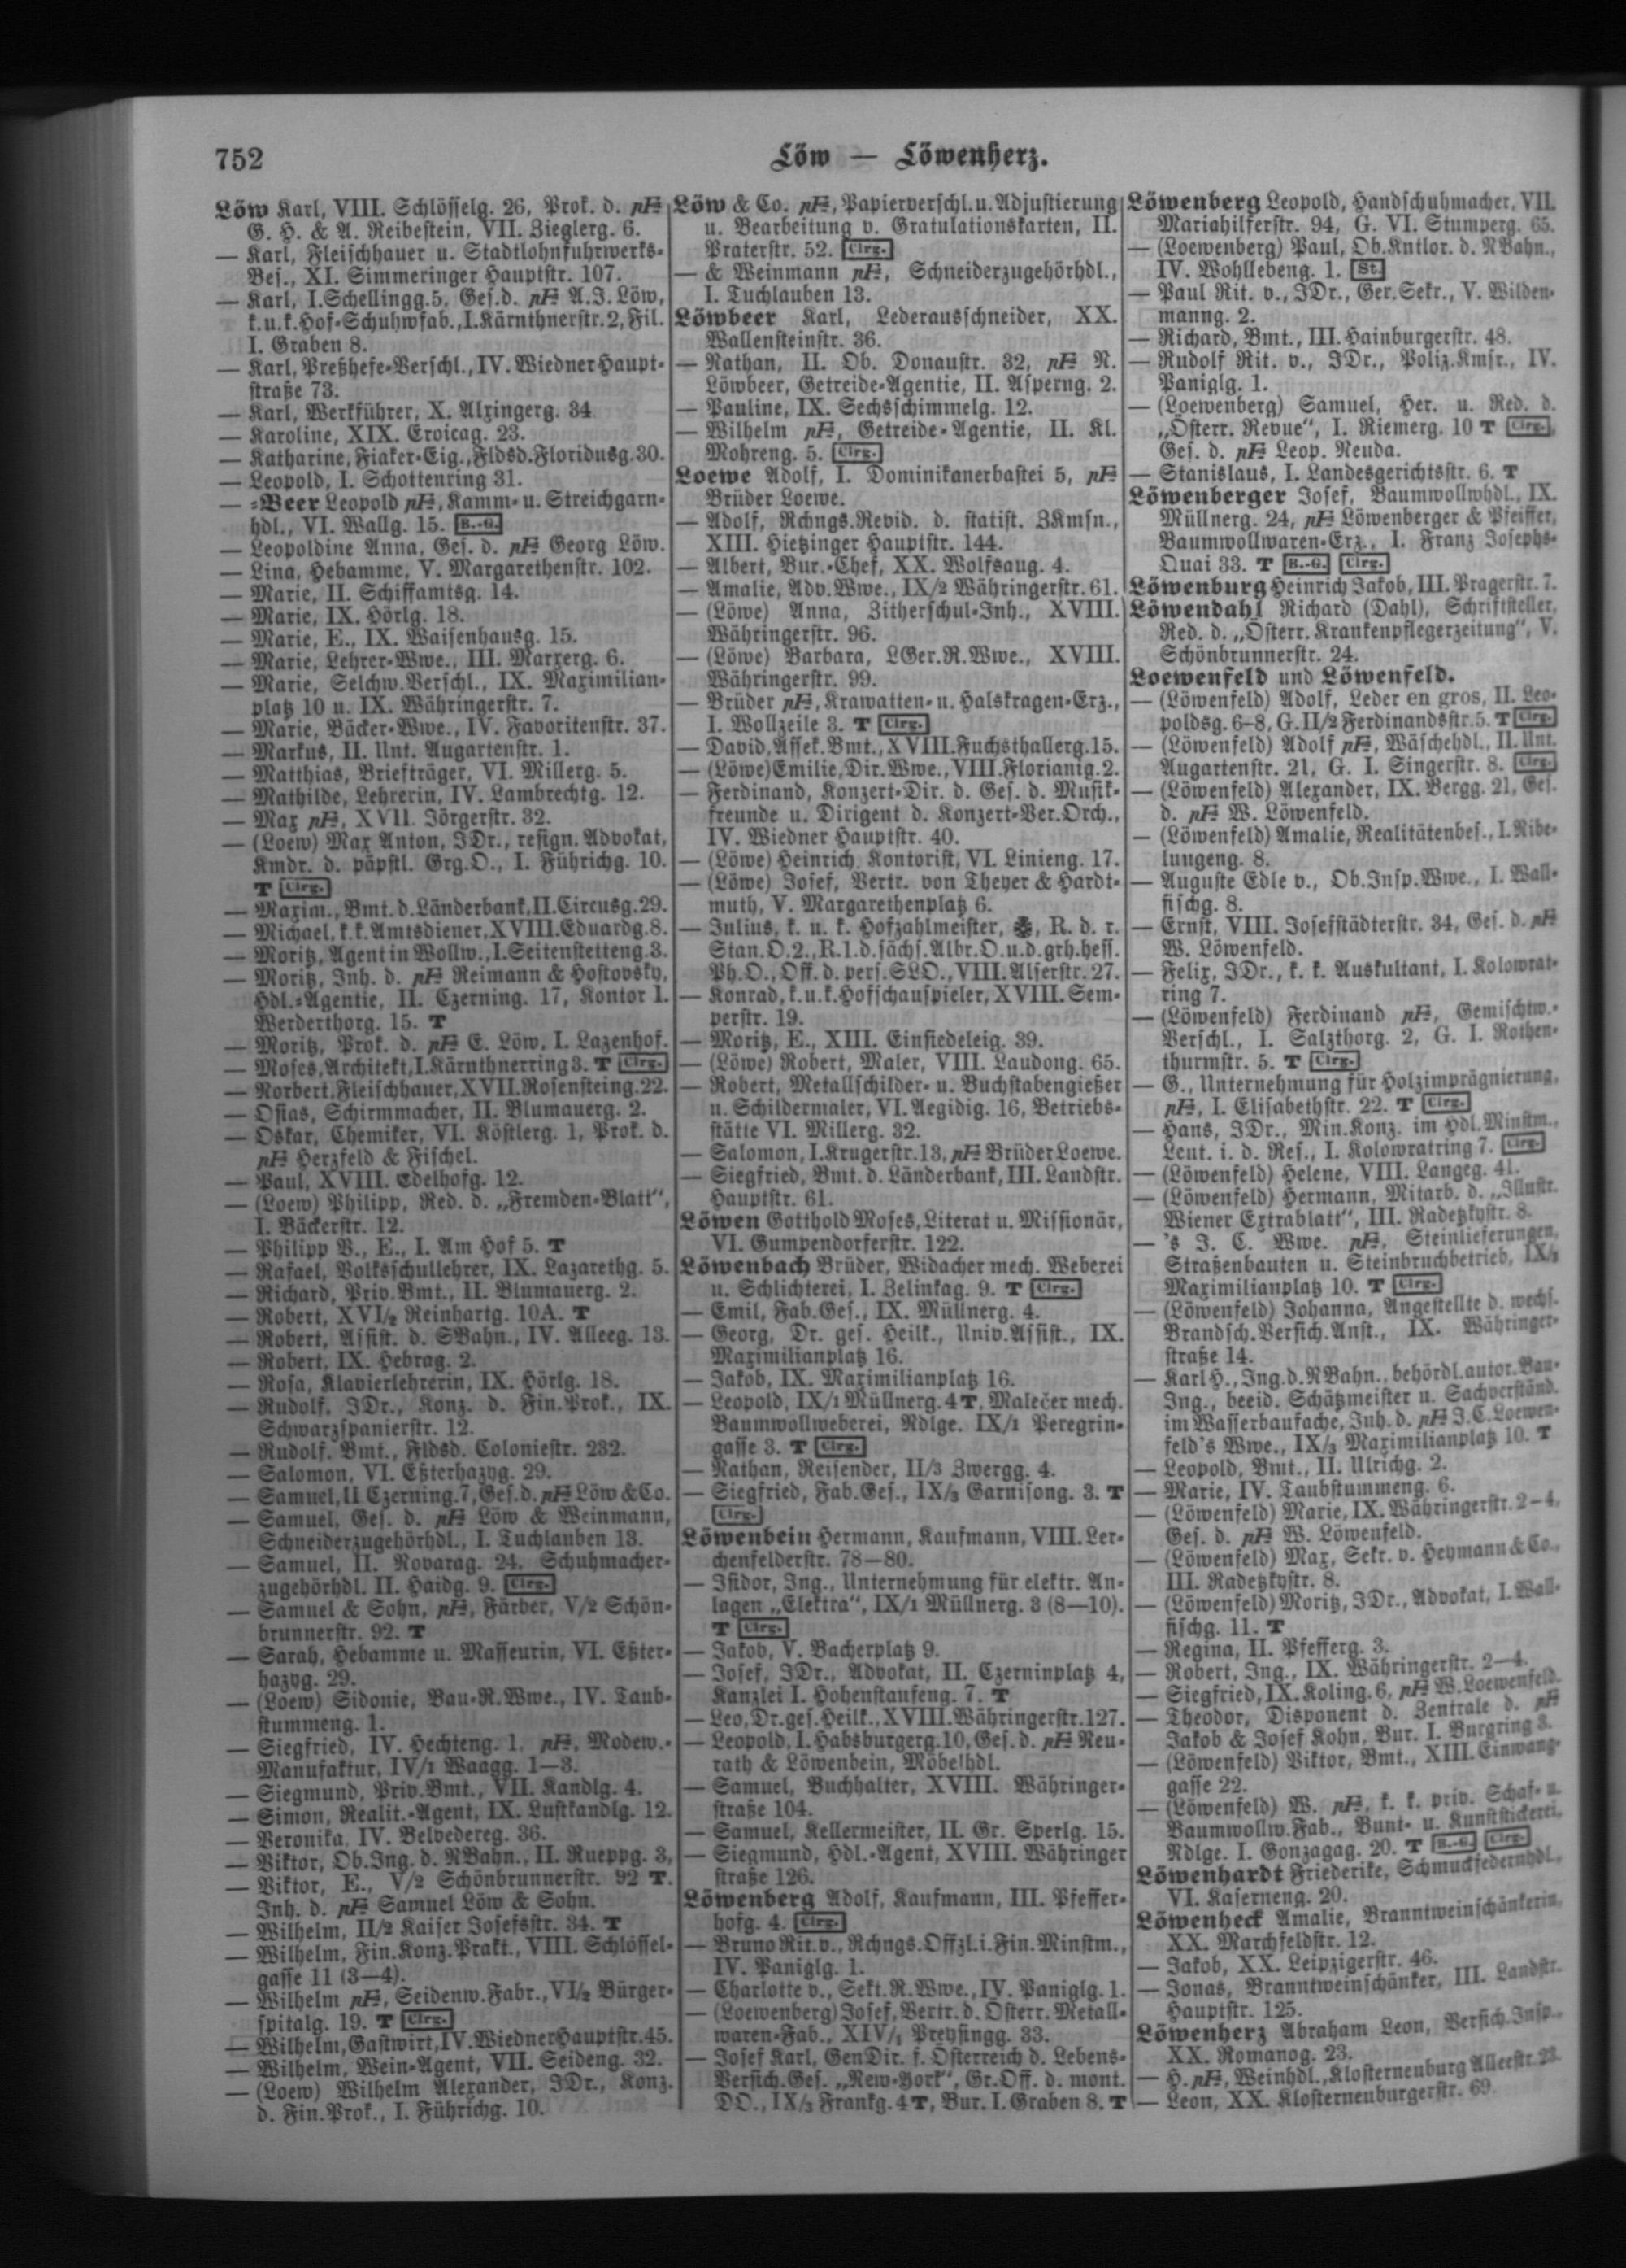 752
Löw — Löwenherz.
Löw Karl, VIII. Schlösselg. 26, Prok. d. pF
G. H. & A. Reibestein, VII. Zieglerg. 6.
— Karl, Fleischhauer u. Stadtlohnfuhrwerks-
Bes., XI. Simmeringer Hauptstr. 107.
— Karl, I. Schellingg. 5, Ges. d. pF A. J. Löw,
k. u. k. Hof-Schuhwfab., I. Kärnthnerstr. 2, Fil.
I. Graben 8.
— Karl, Preßhefe-Verschl., IV. Wiedner Haupt-
straße 73.
— Karl, Werkführer, X. Alxingerg. 34
— Karoline, XIX. Eroicag. 23.
— Katharine, Fiaker-Eig., Fldsd. Floridusg. 30.
— Leopold, I. Schottenring 31.
— -Beer Leopold pF, Kamm- u. Streichgarn-
hdl., VI. Wallg. 15. B.-G.
— Leopoldine Anna, Ges. d. pF Georg Löw.
— Lina, Hebamme, V. Margarethenstr. 102.
— Marie, II. Schiffamtsg. 14.
— Marie, IX. Hörlg. 18.
— Marie, E., IX. Waisenhausg. 15.
— Marie, Lehrer-Wwe., III. Marxerg. 6.
— Marie, Selchw. Verschl., IX. Maximilian-
platz 10 u. IX. Währingerstr. 7.
— Marie, Bäcker-Wwe., IV. Favoritenstr. 37.
— Markus, II. Unt. Augartenstr. 1.
— Matthias, Briefträger, VI. Millerg. 5.
— Mathilde, Lehrerin, IV. Lambrechtg. 12.
— Max pF, XVII. Jörgerstr. 32.
— (Loew) Max Anton, JDr., resign. Advokat,
Kmdr. d. päpstl. Grg. O., I. Führichg. 10.
T Clrg.
— Maxim., Bmt. d. Länderbank, II. Circusg. 29.
— Michael, k. k. Amtsdiener, XVIII. Eduardg. 8.
— Moritz, Agent in Wollw., I. Seitenstetteng. 3.
— Moritz, Inh. d. pF Reimann & Hostovsky,
Hdl.-Agentie, II. Czerning. 17, Kontor I.
Werderthorg. 15. T
— Moritz, Prok. d. pF E. Löw, I. Lazenhof.
— Moses, Architekt, I. Kärnthnerring 3. T Clrg.
— Norbert, Fleischhauer, XVII. Rosensteing. 22.
— Osias, Schirmmacher, II. Blumauerg. 2.
— Oskar, Chemiker, VI. Köstlerg. 1, Prok. d.
pF Herzfeld & Fischel.
— Paul, XVIII. Edelhofg. 12.
— (Loew) Philipp, Red. d. „Fremden-Blatt“,
I. Bäckerstr. 12.
— Philipp B., E., I. Am Hof 5. T
— Rafael, Volksschullehrer, IX. Lazarethg. 5.
— Richard, Priv. Bmt., II. Blumauerg. 2.
— Robert, XVI/2 Reinhartg. 10A. T
— Robert, Assist. d. SBahn., IV. Alleeg. 13.
— Robert, IX. Hebrag. 2.
— Rosa, Klavierlehrerin, IX. Hörlg. 18.
— Rudolf, JDr., Konz. d. Fin. Prok., IX.
Schwarzspanierstr. 12.
— Rudolf, Bmt., Fldsd. Coloniestr. 232.
— Salomon, VI. Eßterhazyg. 29.
— Samuel, II Czerning. 7, Ges. d. pF Löw & Co.
— Samuel, Ges. d. pF Löw & Weinmann,
Schneiderzugehörhdl., I. Tuchlauben 13.
— Samuel, II. Novarag. 24, Schuhmacher-
zugehörhdl. II. Haidg. 9. Clrg.
— Samuel & Sohn, pF, Färber, V/2 Schön-
brunnerstr. 92. T
— Sarah, Hebamme u. Masseurin, VI. Eßter-
hazyg. 29.
— (Loew) Sidonie, Bau-R. Wwe., IV. Taub-
stummeng. 1.
— Siegfried, IV. Hechteng. 1, pF, Modew.-
Manufaktur, IV/1 Waagg. 1—3.
— Siegmund, Priv. Bmt., VII. Kandlg. 4.
— Simon, Realit.-Agent, IX. Lustkandlg. 12.
— Veronika, IV. Belvedereg. 36.
— Viktor, Ob. Ing. d. NBahn., II. Rueppg. 3,
— Viktor, E., V/2 Schönbrunnerstr. 92 T.
Inh. d. pF Samuel Löw & Sohn.
— Wilhelm, II/2 Kaiser Josefsstr. 34. T
— Wilhelm, Fin. Konz. Prakt., VIII. Schlössel-
gasse 11 (3—4).
— Wilhelm pF, Seidenw. Fabr., VI/2 Bürger-
spitalg. 19. T Clrg.
— Wilhelm, Gastwirt, IV. Wiedner Hauptstr. 45.
— Wilhelm, Wein-Agent, VII. Seideng. 32.
— (Loew) Wilhelm Alexander, JDr., Konz.
d. Fin. Prok., I. Führichg. 10.
Löw & Co. pF, Papierverschl. u. Adjustierung
u. Bearbeitung v. Gratulationskarten, II.
Praterstr. 52. Clrg.
— & Weinmann pF, Schneiderzugehörhdl.,
I. Tuchlauben 13.
Löwbeer Karl, Lederausschneider, XX.
Wallensteinstr. 36.
— Nathan, II. Ob. Donaustr. 32, pF N.
Löwbeer, Getreide-Agentie, II. Asperng. 2.
— Pauline, IX. Sechsschimmelg. 12.
— Wilhelm pF, Getreide-Agentie, II. Kl.
Mohreng. 5. Clrg.
Loewe Adolf, I. Dominikanerbastei 5, pF
Brüder Loewe.
— Adolf, Rchngs. Revid. d. statist. ZKmsn.,
XIII. Hietzinger Hauptstr. 144.
— Albert, Bur.-Chef, XX. Wolfsaug. 4.
— Amalie, Adv. Wwe., IX/2 Währingerstr. 61.
— (Löwe) Anna, Zitherschul-Inh., XVIII.
Währingerstr. 96.
— (Löwe) Barbara, LGer. R. Wwe., XVIII.
Währingerstr. 99.
— Brüder pF, Krawatten- u. Halskragen-Erz.,
I. Wollzeile 3. T Clrg.
— David, Assek. Bmt., XVIII. Fuchsthallerg. 15.
— (Löwe) Emilie, Dir. Wwe., VIII. Florianig. 2.
— Ferdinand, Konzert-Dir. d. Ges. d. Musik-
freunde u. Dirigent d. Konzert-Ver. Orch.,
IV. Wiedner Hauptstr. 40.
— (Löwe) Heinrich, Kontorist, VI. Linieng. 17.
— (Löwe) Josef, Vertr. von Theyer & Hardt-
muth, V. Margarethenplatz 6.
— Julius, k. u. k. Hofzahlmeister, R. d. r.
Stan. O. 2., R. 1. d. sächs. Albr. O. u. d. grh. hess.
Ph. O., Off. d. pers. SLO., VIII. Alserstr. 27.
— Konrad, k. u. k. Hofschauspieler, XVIII. Sem-
perstr. 19.
— Moritz, E., XIII. Einsiedeleig. 39.
— (Löwe) Robert, Maler, VIII. Laudong. 65.
— Robert, Metallschilder- u. Buchstabengießer
u. Schildermaler, VI. Aegidig. 16, Betriebs-
stätte VI. Millerg. 32.
— Salomon, I. Krugerstr. 13, pF Brüder Loewe.
— Siegfried, Bmt. d. Länderbank, III. Landstr.
Hauptstr. 61.
Löwen Gotthold Moses, Literat u. Missionär,
VI. Gumpendorferstr. 122.
Löwenbach Brüder, Widacher mech. Weberei
u. Schlichterei, I. Zelinkag. 9. T Clrg.
— Emil, Fab. Ges., IX. Müllnerg. 4.
— Georg, Dr. ges. Heilk., Univ. Assist., IX.
Maximilianplatz 16.
— Jakob, IX. Maximilianplatz 16.
— Leopold, IX/1 Müllnerg. 4 T, Malečer mech.
Baumwollweberei, Ndlge. IX/1 Peregrin-
gasse 3. T Clrg.
— Nathan, Reisender, II/3 Zwergg. 4.
— Siegfried, Fab. Ges., IX/3 Garnisong. 3. T
Clrg.
Löwenbein Hermann, Kaufmann, VIII. Ler-
chenfelderstr. 78—80.
— Isidor, Ing., Unternehmung für elektr. An-
lagen „Elektra“, IX/1 Müllnerg. 3 (8—10).
T Clrg.
— Jakob, V. Bacherplatz 9.
— Josef, JDr., Advokat, II. Czerninplatz 4,
Kanzlei I. Hohenstaufeng. 7. T
— Leo, Dr. ges. Heilk., XVIII. Währingerstr. 127.
— Leopold, I. Habsburgerg. 10, Ges. d. pF Neu-
rath & Löwenbein, Möbelhdl.
— Samuel, Buchhalter, XVIII. Währinger-
straße 104.
— Samuel, Kellermeister, II. Gr. Sperlg. 15.
— Siegmund, Hdl.-Agent, XVIII. Währinger
straße 126.
Löwenberg Adolf, Kaufmann, III. Pfeffer-
hofg. 4. Clrg.
— Bruno Rit. v., Rchngs. Offzl. i. Fin. Minstm.,
IV. Paniglg. 1.
— Charlotte v., Sekt. R. Wwe., IV. Paniglg. 1.
— (Loewenberg) Josef, Vertr. d. Österr. Metall-
waren-Fab., XIV/1 Preysingg. 33.
— Josef Karl, GenDir. f. Österreich d. Lebens-
Versich. Ges. „New-York“, Gr. Off. d. mont.
DO., IX/3 Frankg. 4 T, Bur. I. Graben 8. T
Löwenberg Leopold, Handschuhmacher, VII.
Mariahilferstr. 94, G. VI. Stumperg. 65.
— (Loewenberg) Paul, Ob. Kntlor. d. NBahn.,
IV. Wohllebeng. 1. St.
— Paul Rit. v., JDr., Ger. Sekr., V. Wilden-
manng. 2.
— Richard, Bmt., III. Hainburgerstr. 48.
— Rudolf Rit. v., JDr., Poliz. Kmsr., IV.
Paniglg. 1.
— (Loewenberg) Samuel, Her. u. Red. d.
„Österr. Revue“, I. Riemerg. 10 T Clrg.,
Ges. d. pF Leop. Neuda.
— Stanislaus, I. Landesgerichtsstr. 6. T
Löwenberger Josef, Baumwollwhdl., IX.
Müllnerg. 24, pF Löwenberger & Pfeiffer,
Baumwollwaren-Erz., I. Franz Josephs-
Quai 33. T B.-G. Clrg.
Löwenburg Heinrich Jakob, III. Pragerstr. 7.
Löwendahl Richard (Dahl), Schriftsteller,
Red. d. „Österr. Krankenpflegerzeitung“, V.
Schönbrunnerstr. 24.
Loewenfeld und Löwenfeld.
— (Löwenfeld) Adolf, Leder en gros, II. Leo-
poldsg. 6–8, G. II/2 Ferdinandsstr. 5. T Clrg.
— (Löwenfeld) Adolf pF, Wäschehdl., II. Unt.
Augartenstr. 21, G. I. Singerstr. 8. Clrg.
— (Löwenfeld) Alexander, IX. Bergg. 21, Ges.
d. pF W. Löwenfeld.
— (Löwenfeld) Amalie, Realitätenbes., I. Nibe-
lungeng. 8.
— Auguste Edle v., Ob. Insp. Wwe., I. Wall-
fischg. 8.
— Ernst, VIII. Josefstädterstr. 34, Ges. d. pF
W. Löwenfeld.
— Felix, JDr., k. k. Auskultant, I. Kolowrat-
ring 7.
— (Löwenfeld) Ferdinand pF, Gemischtw.-
Verschl., I. Salzthorg. 2, G. I. Rothen-
thurmstr. 5. T Clrg.
— G., Unternehmung für Holzimprägnierung,
pF, I. Elisabethstr. 22. T Clrg.
— Hans, JDr., Min. Konz. im Hdl. Minstm.,
Leut. i. d. Res., I. Kolowratring 7. Clrg.
— (Löwenfeld) Helene, VIII. Langeg. 41.
— (Löwenfeld) Hermann, Mitarb. d. „Illustr.
Wiener Extrablatt“, III. Radetzkystr. 8.
— 's J. C. Wwe. pF, Steinlieferungen,
Straßenbauten u. Steinbruchbetrieb, IX/3
Maximilianplatz 10. T Clrg.
— (Löwenfeld) Johanna, Angestellte d. wechs.
Brandsch. Versich. Anst., IX. Währinger-
straße 14.
— Karl H., Ing. d. NBahn., behördl. autor. Bau-
Ing., beeid. Schätzmeister u. Sachverständ.
im Wasserbaufache, Inh. d. pF J. C. Loewen-
feld's Wwe., IX/3 Maximilianplatz 10. T
— Leopold, Bmt., II. Ulrichg. 2.
— Marie, IV. Taubstummeng. 6.
— (Löwenfeld) Marie, IX. Währingerstr. 2–4,
Ges. d. pF W. Löwenfeld.
— (Löwenfeld) Max, Sekr. v. Heymann & Co.,
III. Radetzkystr. 8.
— (Löwenfeld) Moritz, JDr., Advokat, I. Wall-
fischg. 11. T
— Regina, II. Pfefferg. 3.
— Robert, Ing., IX. Währingerstr. 2—4.
— Siegfried, IX. Koling. 6, pF W. Loewenfeld.
— Theodor, Disponent d. Zentrale d. pF
Jakob & Josef Kohn, Bur. I. Burgring 3.
— (Löwenfeld) Viktor, Bmt., XIII. Einwang-
gasse 22.
— (Löwenfeld) W. pF, k. k. priv. Schaf- u.
Baumwollw. Fab., Bunt- u. Kunststickerei,
Ndlge. I. Gonzagag. 20. T B.-G. Clrg.
Löwenhardt Friederike, Schmuckfedernhdl.,
VI. Kaserneng. 20.
Löwenheck Amalie, Branntweinschänkerin,
XX. Marchfeldstr. 12.
— Jakob, XX. Leipzigerstr. 46.
— Jonas, Branntweinschänker, III. Landstr.
Hauptstr. 125.
Löwenherz Abraham Leon, Versich. Insp.,
XX. Romanog. 23.
— H. pF, Weinhdl., Klosterneuburg Alleestr. 23.
— Leon, XX. Klosterneuburgerstr. 69.